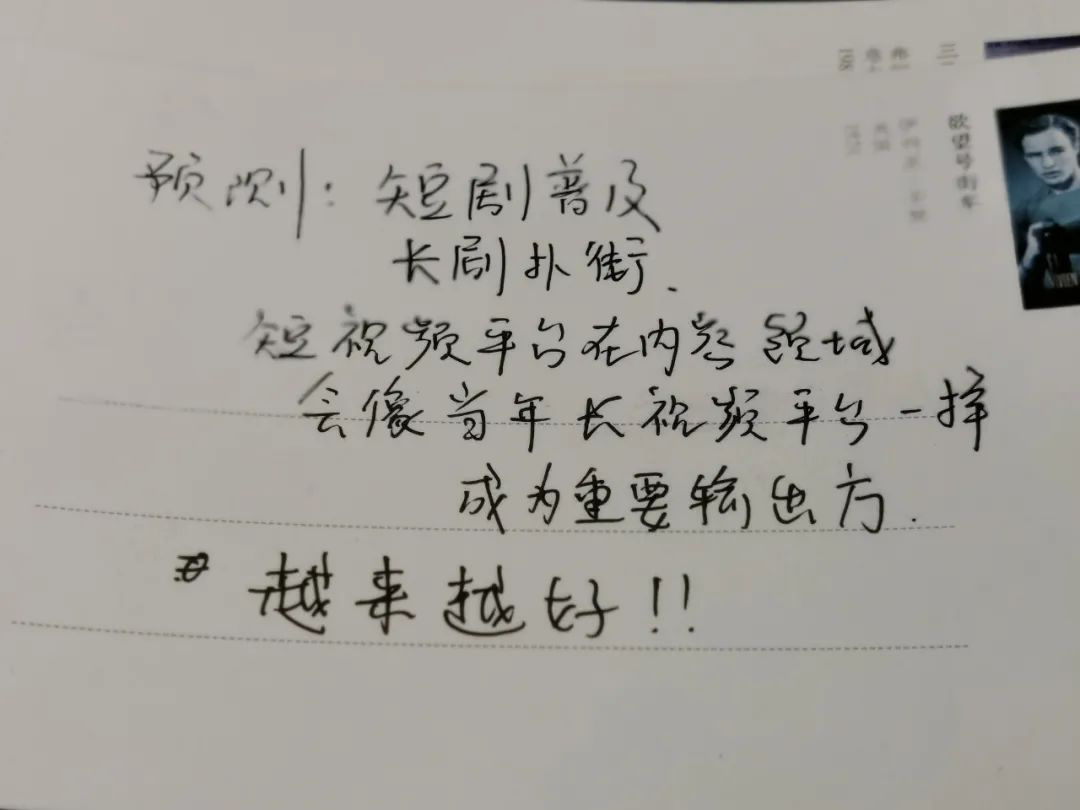 预测：短剧普及
长剧扑街.
短视频平台在内容领域
会像当年长视频平台一样
成为重要输出方.
越来越好!!
欲望号街车